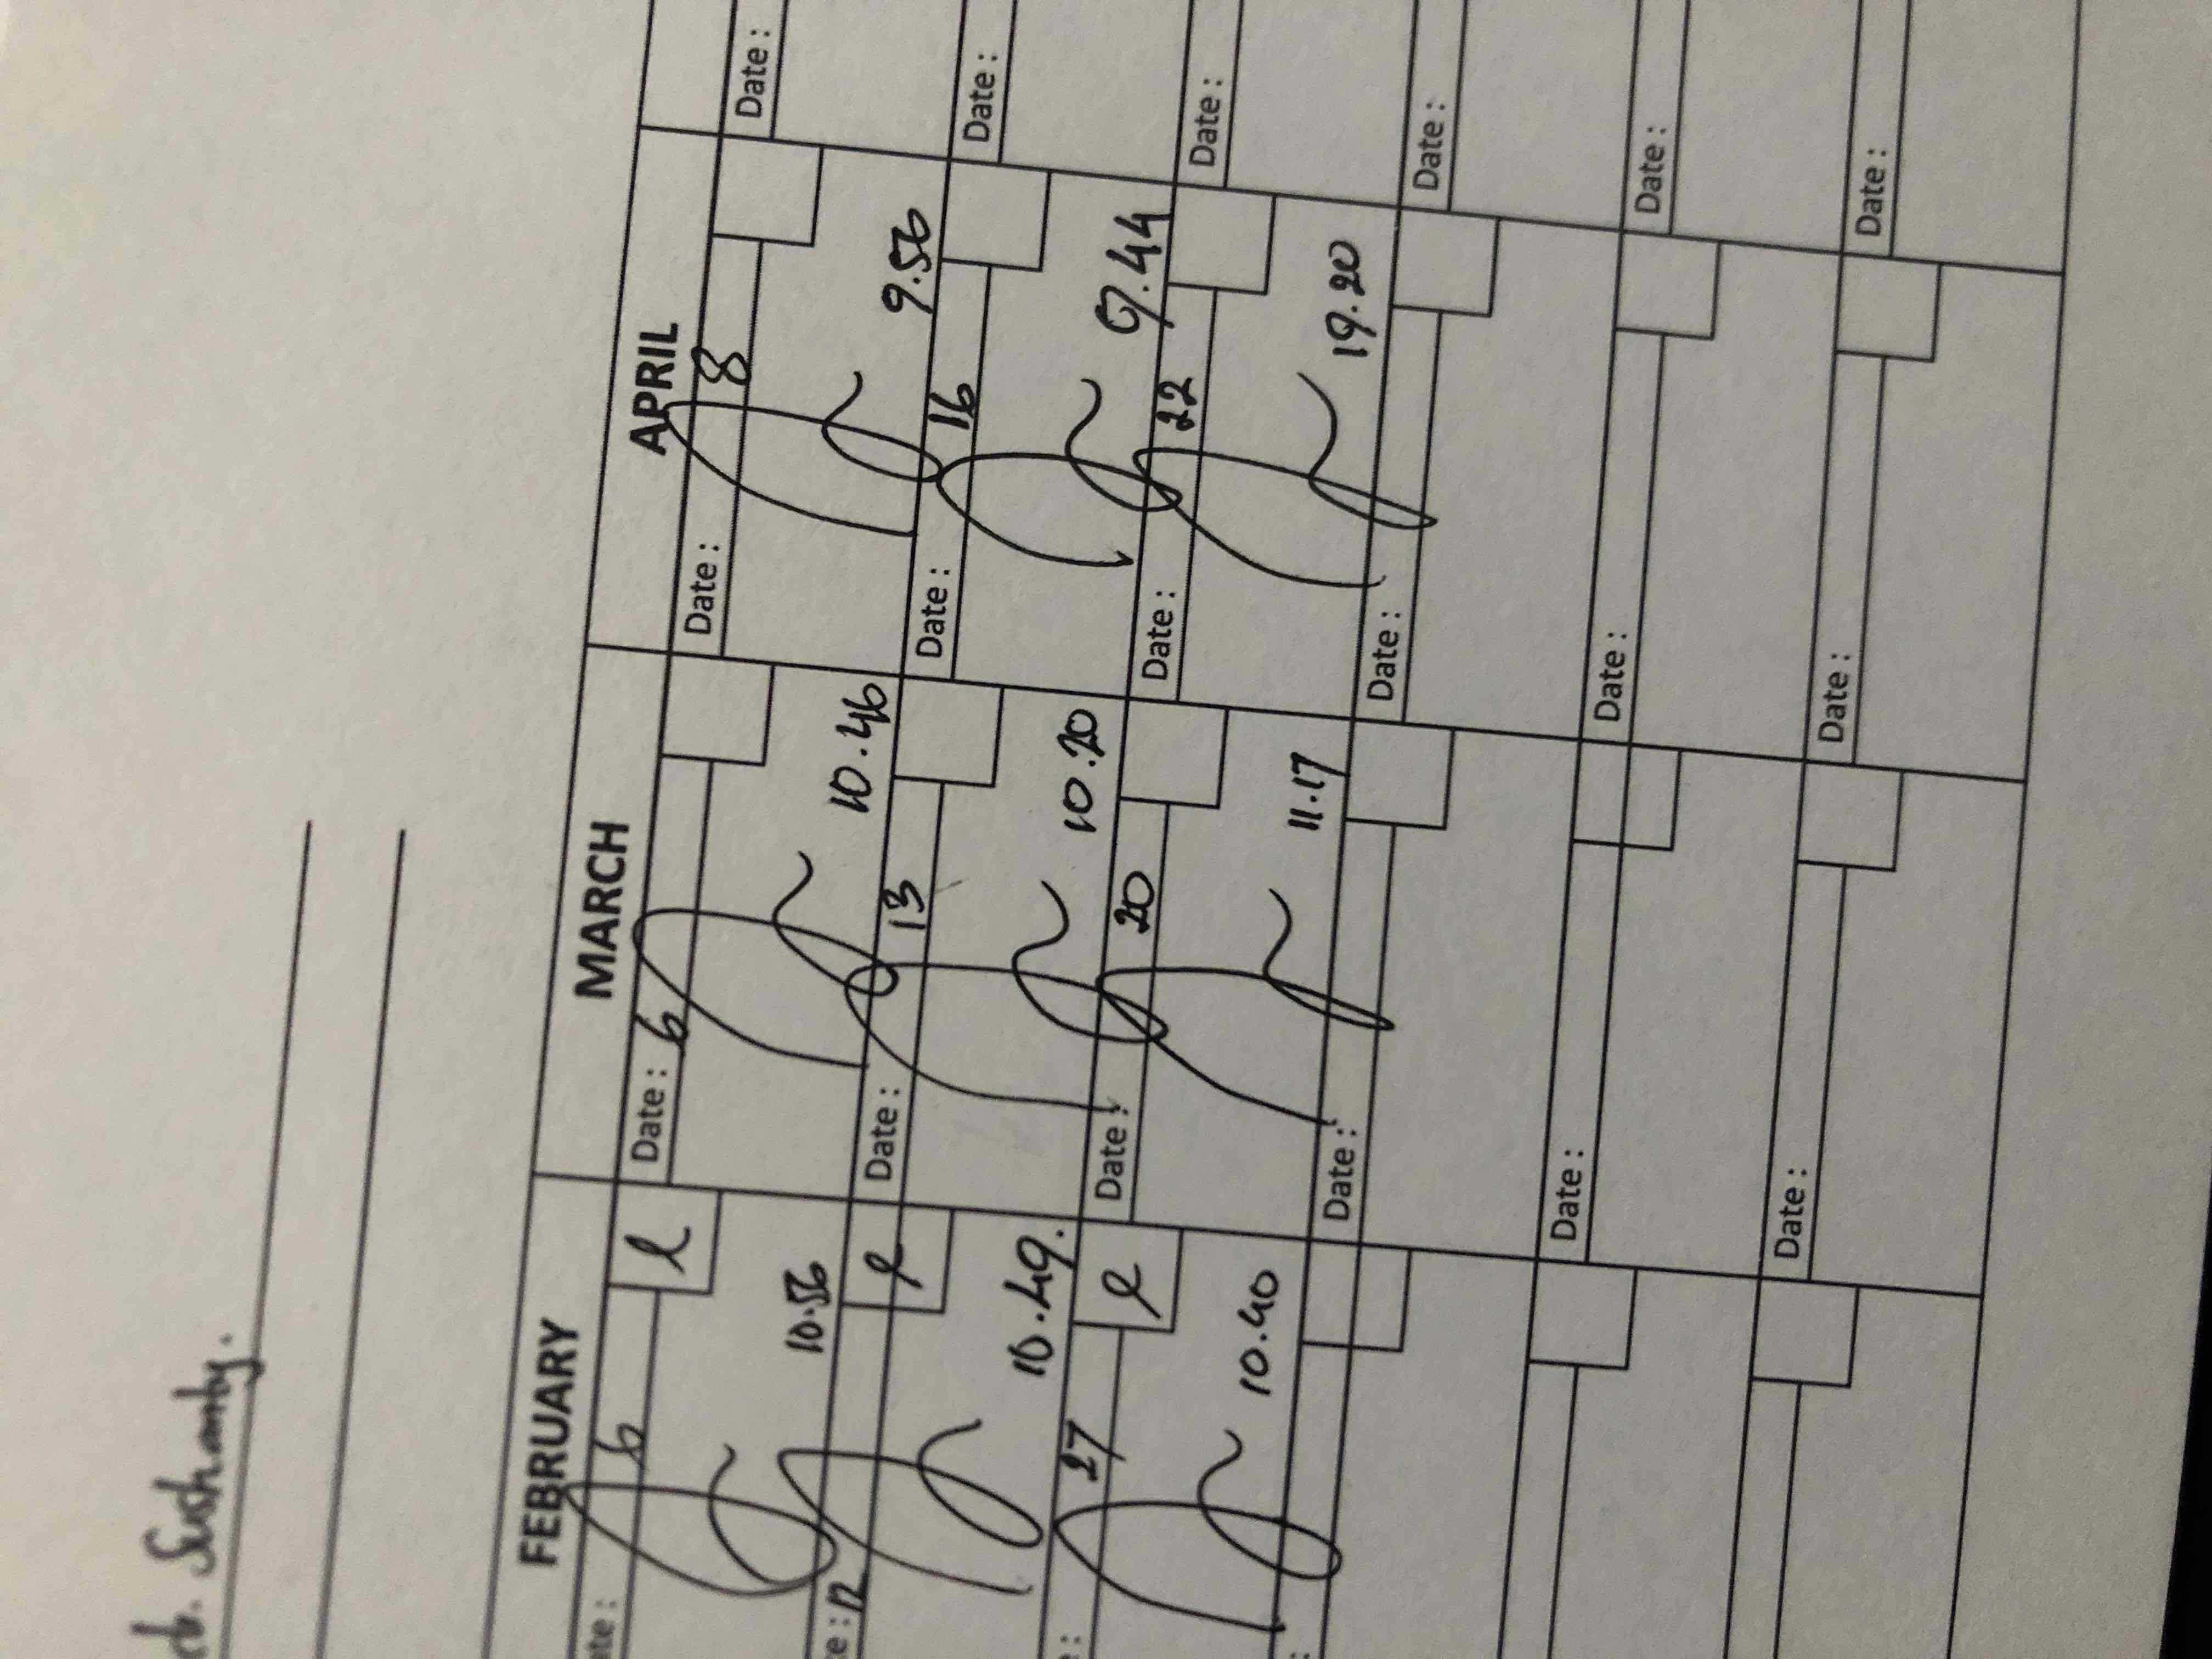 Sushanty.
FEBRUARY MARCH APRIL
ate: 6 Date: 6 Date: 8 Date:
10.56 10.46 9.56
te: 12 Date: 13 Date: 16 Date:
10.49. 10.20 9.44
: 27 Date: 20 Date: 22 Date:
10.40 11.17 19.20
: Date: Date: Date:
Date: Date: Date:
Date: Date: Date: